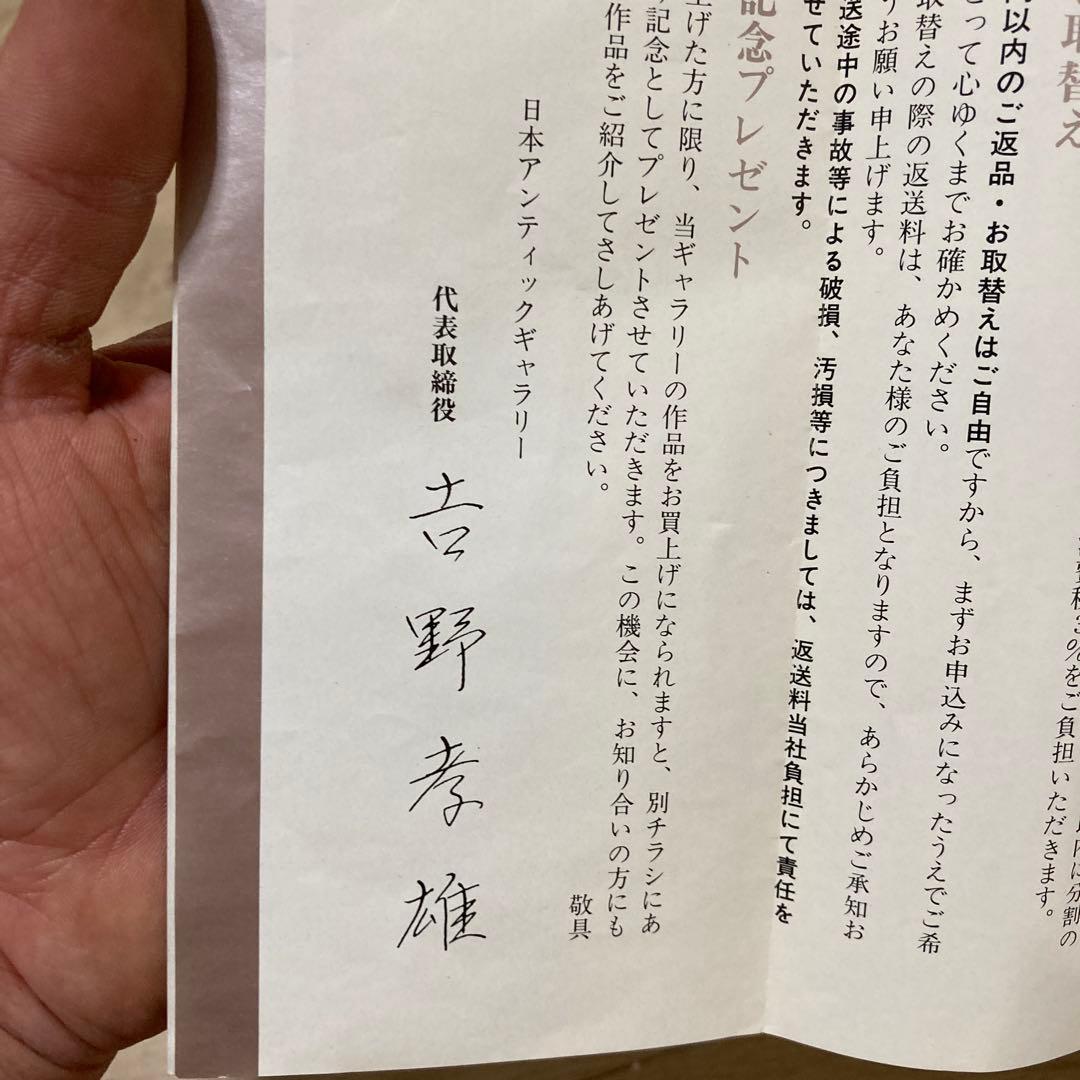 取替え
以内のご返品・お取替えはご自由ですから、まずお申込みになったうえでご希
とって心ゆくまでお確かめください。
取替えの際の返送料は、あなた様のご負担となりますので、あらかじめご承知お
うお願い申上げます。
送途中の事故等による破損、汚損等につきましては、返送料当社負担にて責任を
せていただきます。
記念プレゼント
上げた方に限り、当ギャラリーの作品をお買上げになられますと、別チラシにあ
記念としてプレゼントさせていただきます。この機会に、お知り合いの方にも
作品をご紹介してさしあげてください。
敬具
日本アンティックギャラリー
代表取締役
吉野孝雄